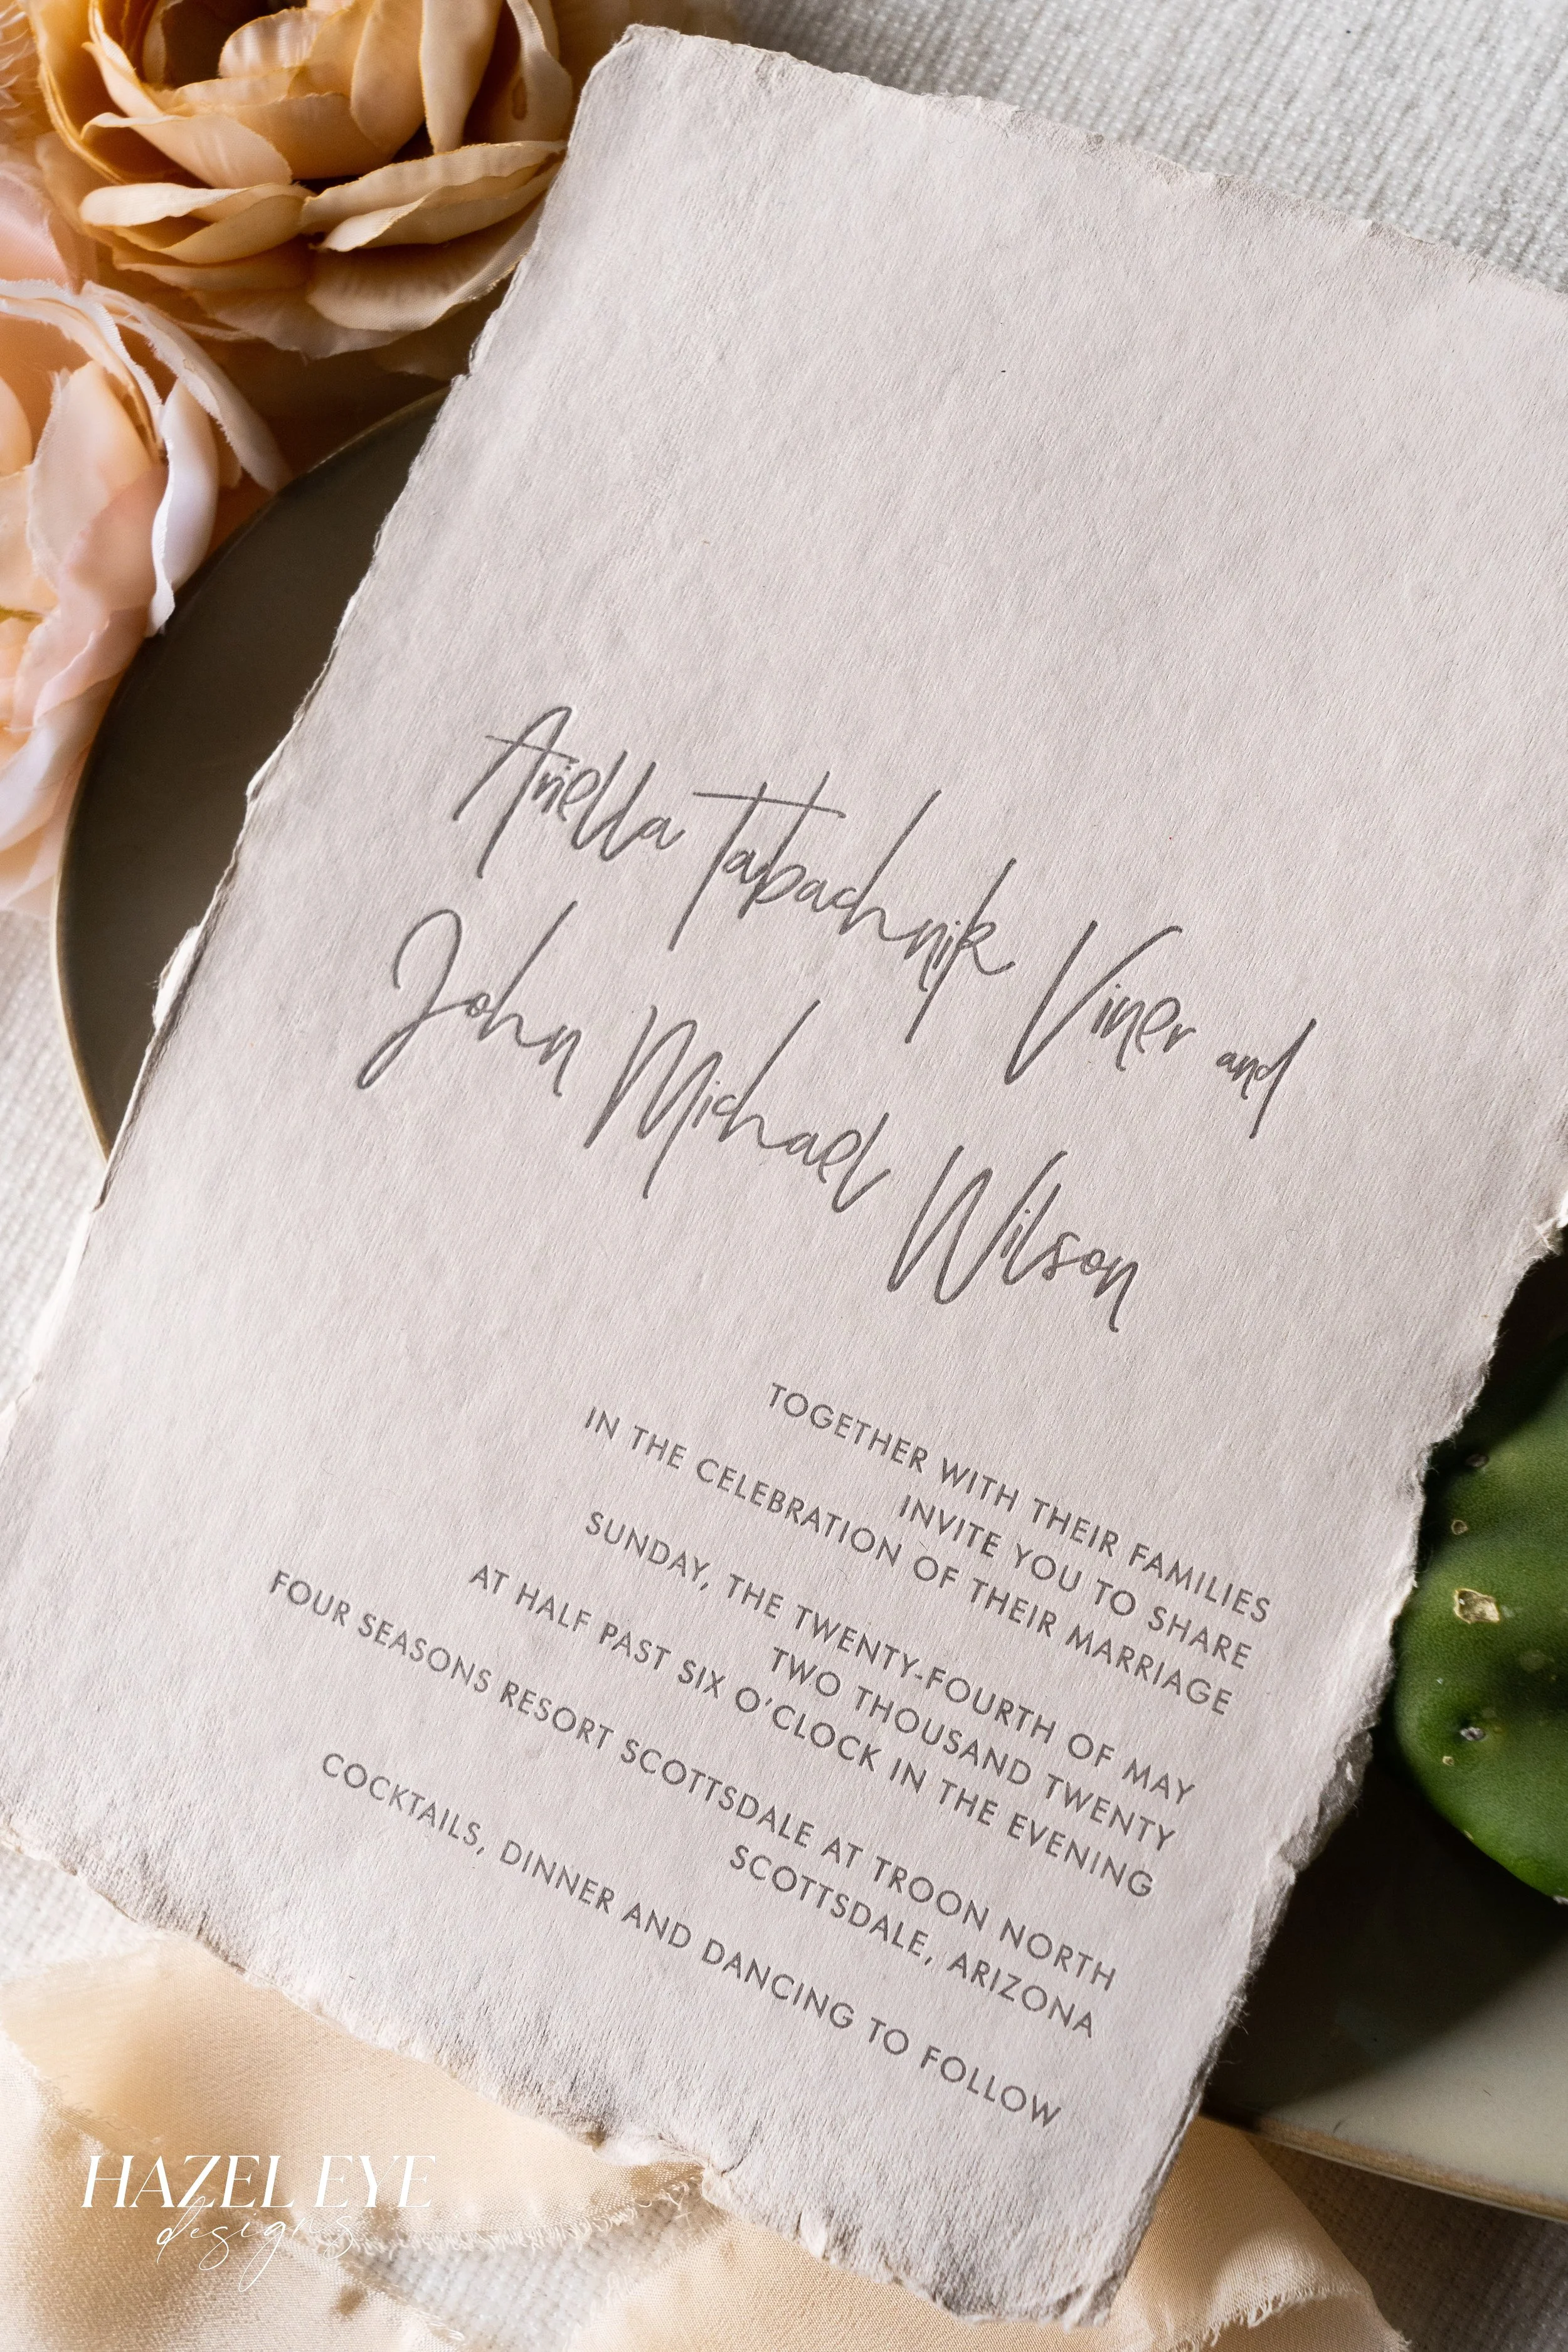 Ariella Tabachnik Viner and
John Michael Wilson
TOGETHER WITH THEIR FAMILIES
INVITE YOU TO SHARE
IN THE CELEBRATION OF THEIR MARRIAGE
SUNDAY, THE TWENTY-FOURTH OF MAY
TWO THOUSAND TWENTY
AT HALF PAST SIX O'CLOCK IN THE EVENING
FOUR SEASONS RESORT SCOTTSDALE AT TROON NORTH
SCOTTSDALE, ARIZONA
COCKTAILS, DINNER AND DANCING TO FOLLOW
HAZEL EYE
designs